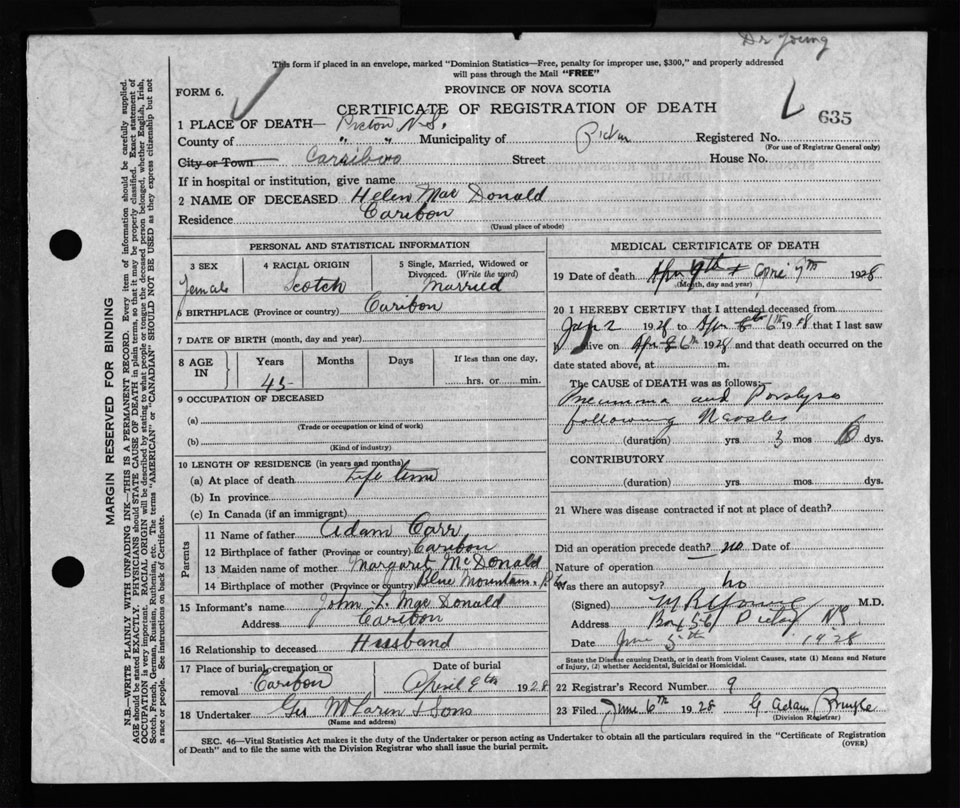 Dr Young
This form if placed in an envelope, marked "Dominion Statistics—Free, penalty for improper use, $300," and properly addressed
will pass through the Mail "FREE"
FORM 6.
PROVINCE OF NOVA SCOTIA
CERTIFICATE OF REGISTRATION OF DEATH
635
1 PLACE OF DEATH— Pictou N.S.
County of " " Municipality of Pictou Registered No.
(For use of Registrar General only)
City or Town Street House No.
If in hospital or institution, give name
2 NAME OF DECEASED Helen Mac Donald
Residence Caribou
(Usual place of abode)
PERSONAL AND STATISTICAL INFORMATION
3 SEX 4 RACIAL ORIGIN 5 Single, Married, Widowed or
Divorced. (Write the word)
Female Scotch Married
6 BIRTHPLACE (Province or country) Caribou
7 DATE OF BIRTH (month, day and year)
8 AGE IN Years Months Days If less than one day,
45 hrs. or min.
9 OCCUPATION OF DECEASED
(a)
(Trade or occupation or kind of work)
(b)
(Kind of industry)
10 LENGTH OF RESIDENCE (in years and months)
(a) At place of death Life time
(b) In province
(c) In Canada (if an immigrant)
Parents
11 Name of father Adam Carr
12 Birthplace of father (Province or country) Caribou
13 Maiden name of mother Margaret McDonald
14 Birthplace of mother (Province or country) Blue Mountain
15 Informant's name John L. Mac Donald
Address Caribou
16 Relationship to deceased Husband
17 Place of burial, cremation or
removal Caribou
Date of burial
April 9th 1928
18 Undertaker Geo McLaren & Sons
(Name and address)
MEDICAL CERTIFICATE OF DEATH
19 Date of death 7th 1928
(Month, day and year)
20 I HEREBY CERTIFY that I attended deceased from
Jan 2 1928 to Apr 6th 1928 that I last saw
h alive on Apr 6th 1928 and that death occurred on the
date stated above, at m.
The CAUSE of DEATH was as follows:—
and Paralysis
following
(duration) yrs 3 mos dys.
CONTRIBUTORY
(duration) yrs mos dys.
21 Where was disease contracted if not at place of death?
Did an operation precede death? no Date of
Nature of operation
Was there an autopsy? no
(Signed) M.D.
Address Box 56 Pictou NS
Date June 5th 1928
State the Disease causing Death, or in death from Violent Causes, state (1) Means and Nature
of Injury, (2) whether Accidental, Suicidal or Homicidal.
22 Registrar's Record Number 9
23 Filed June 6th 1928 G. Adam
(Division Registrar)
SEC. 46—Vital Statistics Act makes it the duty of the Undertaker or person acting as Undertaker to obtain all the particulars required in the "Certificate of Registration
of Death" and to file the same with the Division Registrar who shall issue the burial permit. (OVER)
MARGIN RESERVED FOR BINDING
N.B.—WRITE PLAINLY WITH UNFADING INK—THIS IS A PERMANENT RECORD. Every item of information should be carefully supplied.
AGE should be stated EXACTLY. PHYSICIANS should STATE CAUSE OF DEATH in plain terms, so that it may be properly classified. Exact statement of
OCCUPATION is very important. RACIAL ORIGIN will be described by stating to what people or tongue the deceased person belonged, whether English, Irish,
Scotch, French, German, Russian, Ruthenian, etc. The terms "AMERICAN" or "CANADIAN" SHOULD NOT BE USED as they express citizenship but not
a race or people. See instructions on back of Certificate.